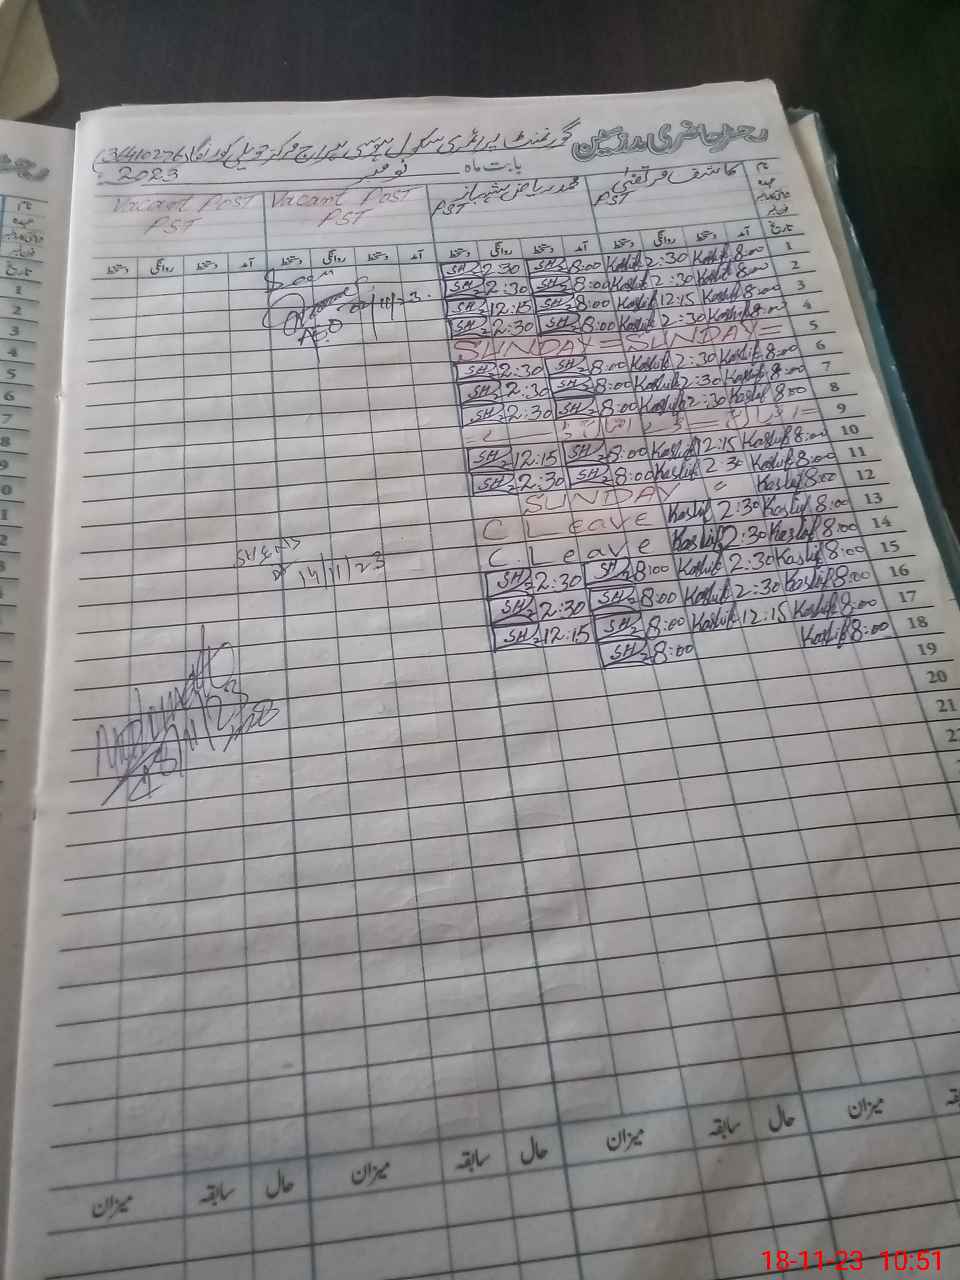 رجسٹر حاضری مدرسین گورنمنٹ پرائمری سکول مرکز حویلی کورنگا (36410276)
بابت ماہ نومبر 2023
نام عہدہ کاشف مرتضیٰ PST محمد ریاض شہباز PST Vacant Post PST Vacant Post PST
تاریخ آمد دستخط روانگی دستخط آمد دستخط روانگی دستخط آمد دستخط روانگی دستخط آمد دستخط روانگی دستخط
1 8:00 Kashif 2:30 Kashif 8:00 SH 2:30 SH
2 8:00 Kashif 2:30 Kashif 8:00 SH 2:30 SH
3 8:00 Kashif 12:15 Kashif 8:00 SH 12:15 SH
4 8:00 Kashif 2:30 Kashif 8:00 SH 2:30 SH
5 SUNDAY = SUNDAY =
6 8:00 Kashif 2:30 Kashif 8:00 SH 2:30 SH
7 8:00 Kashif 2:30 Kashif 8:00 SH 2:30 SH
8 8:00 Kashif 2:30 Kashif 8:00 SH 2:30 SH
9
10 8:00 Kashif 12:15 Kashif 8:00 SH 12:15 SH
11 8:00 Kashif 2:30 Kashif 8:00 SH 2:30 SH
12 8:00 Kashif " SUNDAY
13 8:00 Kashif 2:30 Kashif C Leave
14 8:00 Kashif 2:30 Kashif C. Leave
15 8:00 Kashif 2:30 Kashif 8:00 SH 2:30 SH
16 8:00 Kashif 2:30 Kashif 8:00 SH 2:30 SH
17 8:00 Kashif 12:15 Kashif 8:00 SH 12:15 SH
18 8:00 Kashif 8:00 SH
19
20
21
AEO
14/11/23
میزان حال سابقہ میزان حال سابقہ میزان حال سابقہ میزان
18-11-23 10:51